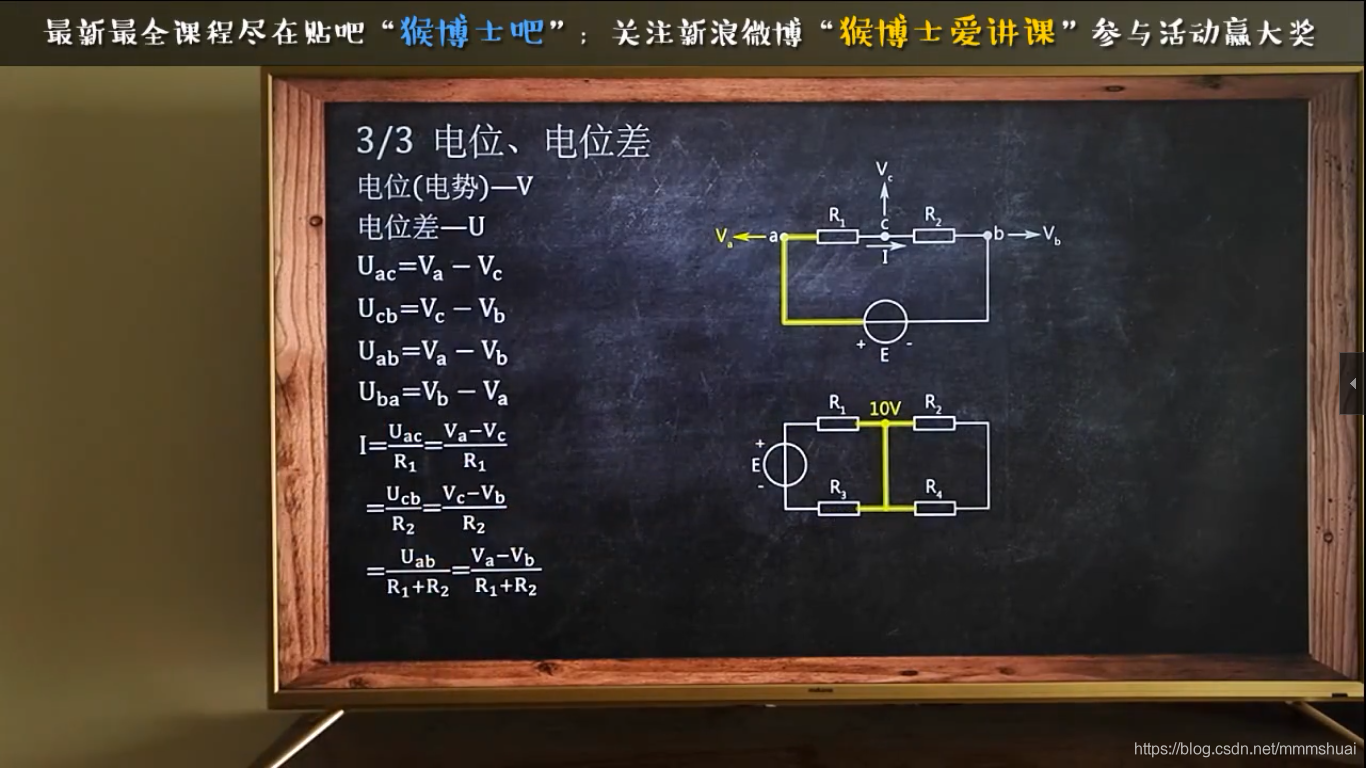 最新最全课程尽在贴吧“猴博士吧”；关注新浪微博“猴博士爱讲课”参与活动赢大奖
3/3 电位、电位差
电位(电势)—V
电位差—U
Uac=Va − Vc
Ucb=Vc − Vb
Uab=Va − Vb
Uba=Vb − Va
I=Uac/R1=Va−Vc/R1
=Ucb/R2=Vc−Vb/R2
=Uab/R1+R2=Va−Vb/R1+R2
Vc
R1 c R2
Va a b Vb
I
+ -
E
R1 10V R2
+
E
-
R3 R4
https://blog.csdn.net/mmmshuai